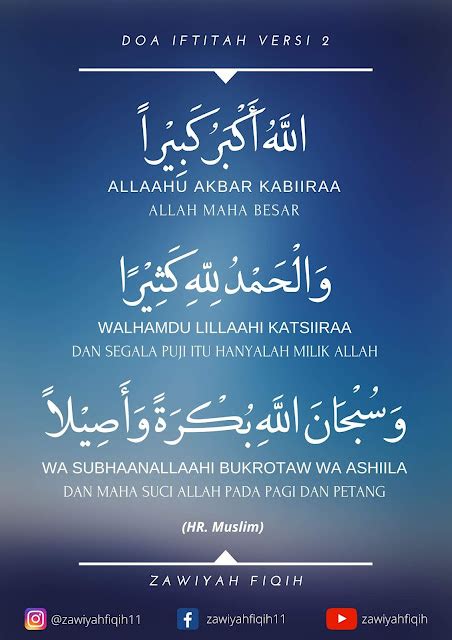 DOA IFTITAH VERSI 2
اللَّهُ أَكْبَرُ كَبِيْرًا
ALLAAHU AKBAR KABIIRAA
ALLAH MAHA BESAR
وَالْحَمْدُ لِلَّهِ كَثِيْرًا
WALHAMDU LILLAAHI KATSIIRAA
DAN SEGALA PUJI ITU HANYALAH MILIK ALLAH
وَسُبْحَانَ اللَّهِ بُكْرَةً وَأَصِيْلاً
WA SUBHAANALLAAHI BUKROTAW WA ASHIILA
DAN MAHA SUCI ALLAH PADA PAGI DAN PETANG
(HR. Muslim)
ZAWIYAH FIQIH
@zawiyahfiqih11 zawiyahfiqih11 zawiyahfiqih